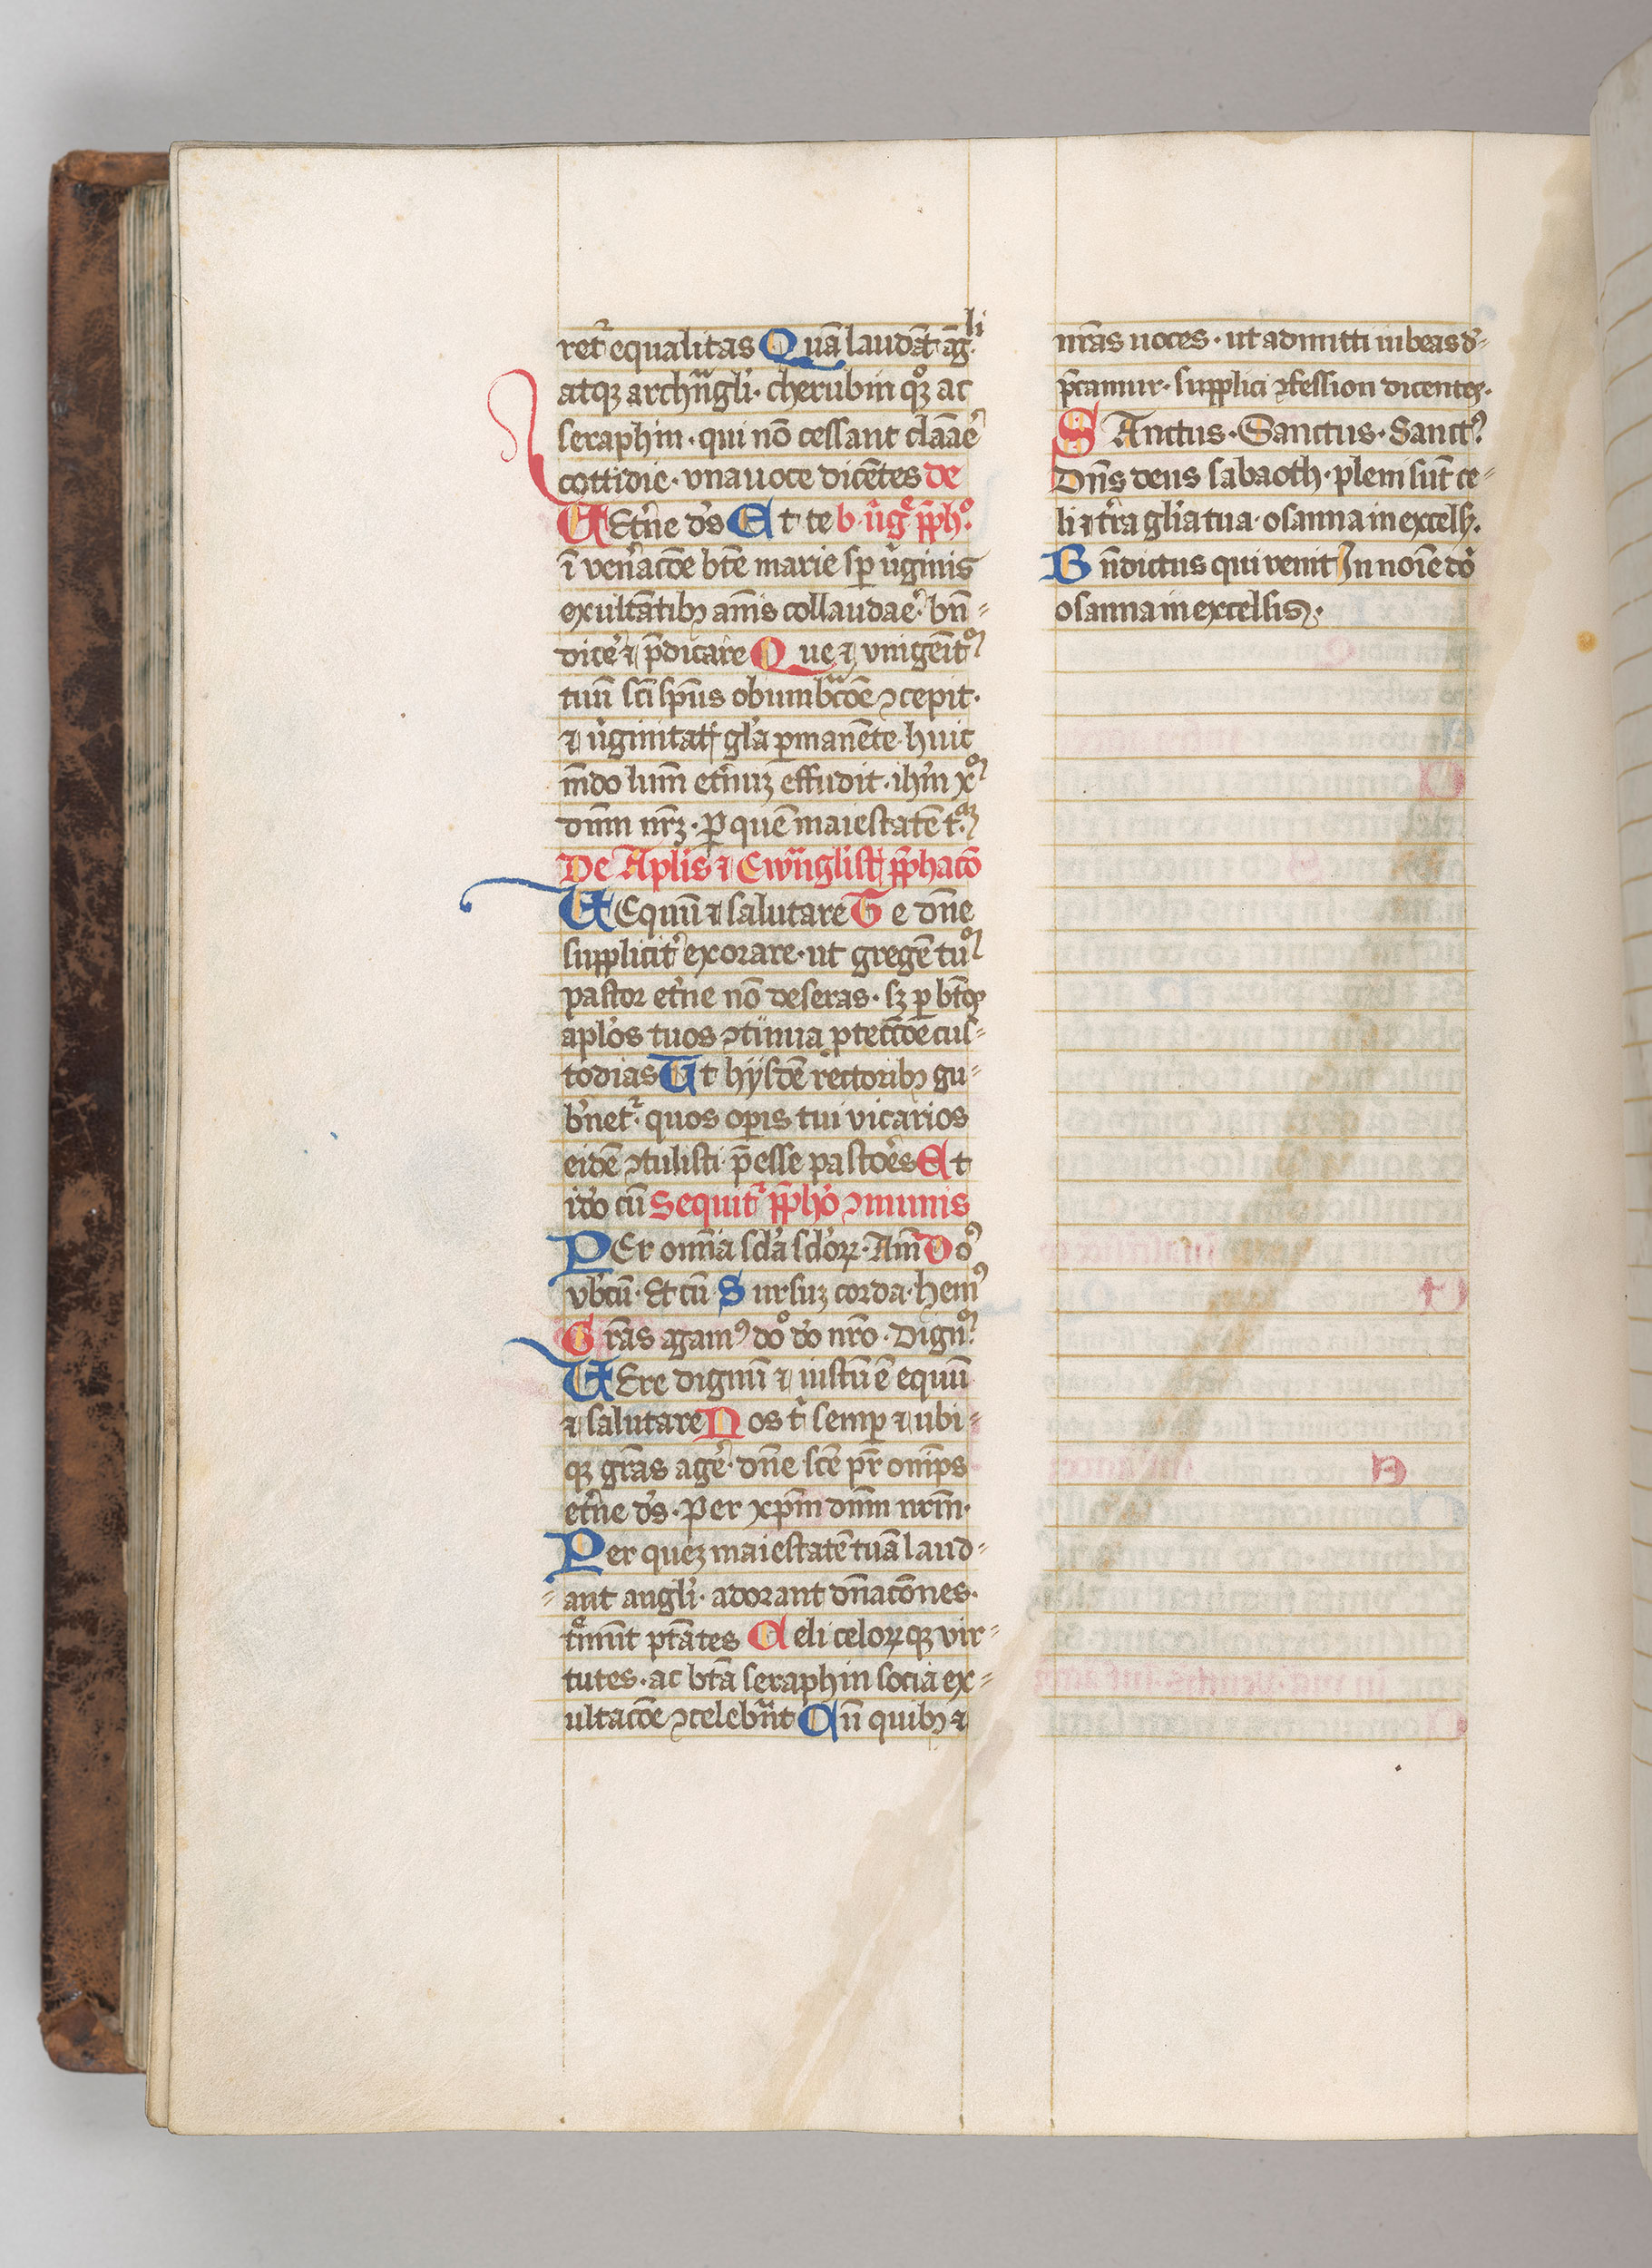 ret᷑ equalitas Quā laudāt ag̅li
atqȝ archāgłi · cherubin qͦȝ ac
seraphin · qui nō cessant claāe᷑
cottidie · vna uoce dicētes de
Et᷑ne ds̄ Et te b · u᷑gͤ p̄ph̄ͦ
ī ven᷑acōe btē marie sꝑ u᷑ginis
exultātibꝫ aīmis collaudae᷑ · bn̄⸗
dice᷑ ⁊ p̄dicare Que ⁊ vnigēitͫ
tuū sc̄i sp̄us obumbͣcōe ꝯcepit ·
⁊ u᷑ginitatꝭ gl̄a ꝑmanēte huic
mūdo lum̄ et᷑nuȝ effudit · ihm̄ xͫ
dn̄m nr̄ȝ · ꝑ quē maiestatē tͣȝ
De Apl̄is ⁊ Ewāglistꝭ p̄phacō
Equū ⁊ salutare Te dn̄e
supplicit᷑ exorare · ut gregē tuͫ
pastor et᷑ne nō deseras · sȝ ꝑ btōs
apl̄os tuos ꝯtinua ꝓteccōe cus⸗
todias Ut hijsdē rectoribꝫ gu⸗
b᷑net᷑ · quos oꝑis tui vicarios
eidē ꝯtulisti p̄esse pastoēs Et
ido cū Sequit᷑ p̄pho ꝯmunis
PEr om̄ia scl̄a scl̄oꝝ · Am̄ Doꝰ
vbcū · Et cū Sursuȝ corda · hemꝰ
Gr̄as agamꝰ dōo dō nr̄o · Dignͫ
UEre dignū ⁊ iustū ē equū
⁊ salutare Nos t᷑ semꝑ ⁊ ubi⸗
qȝ gr̄as age᷑ · dn̄e sc̄e pr̄ om̄ips
et᷑ne ds̄ · Per xp̄m dn̄m nr̄m ·
Per queȝ maiestatē tuā laud⸗
⸗ant angl̄i · adorant dn̄acōnes ·
tͤmūt ptātes Celi celoꝝqȝ vir⸗
tutes · ac btā seraphin socia ex⸗
ultacōe ꝯcelebͣnt Cū quibꝫ ⁊
nr̄as uoces · ut admitti iubeas d᷑⸗
p̄camur · supplici ꝯfession dicentes ·
SAnctus · Sanctus · Sanctꝰ
Dn̄s deus sabaoth · pleni sūt ce⸗
li ⁊ t᷑ra gl̄ia tua · osanna in excels̄ ·
Bn̄dictus qui venit In noīe do᷑
osanna in excelsis ·